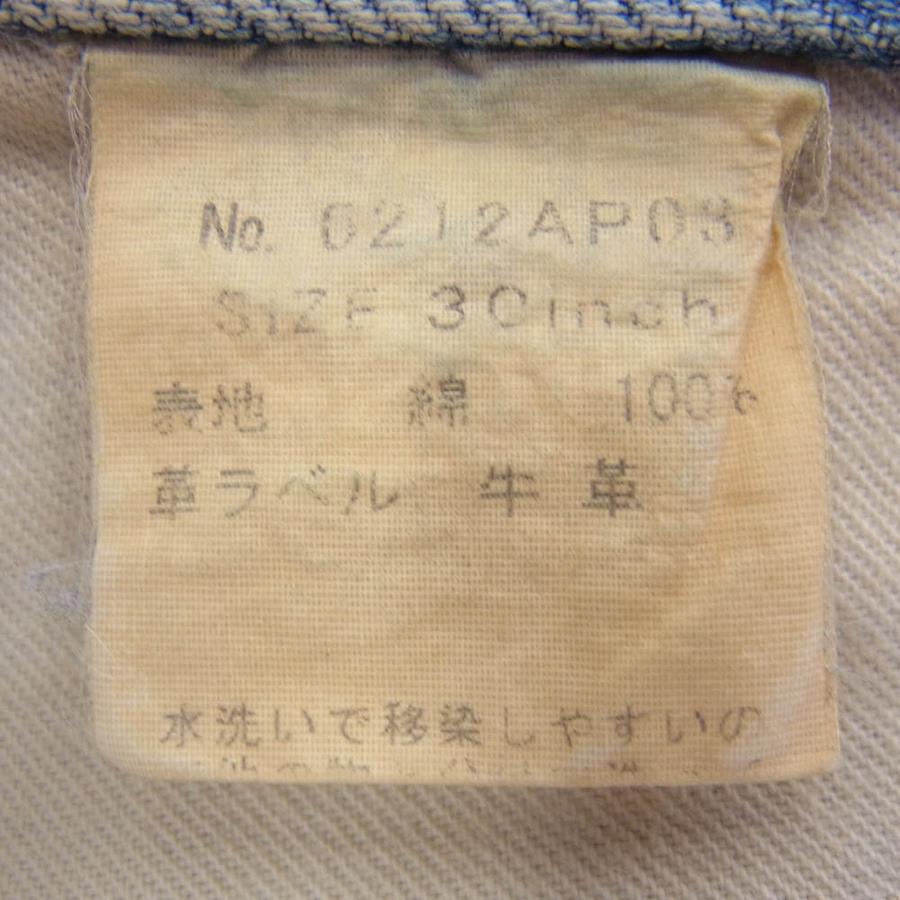 No. 0212AP03
SiZE 30inch
表地 綿 100%
革ラベル 牛革
水洗いで移染しやすいの